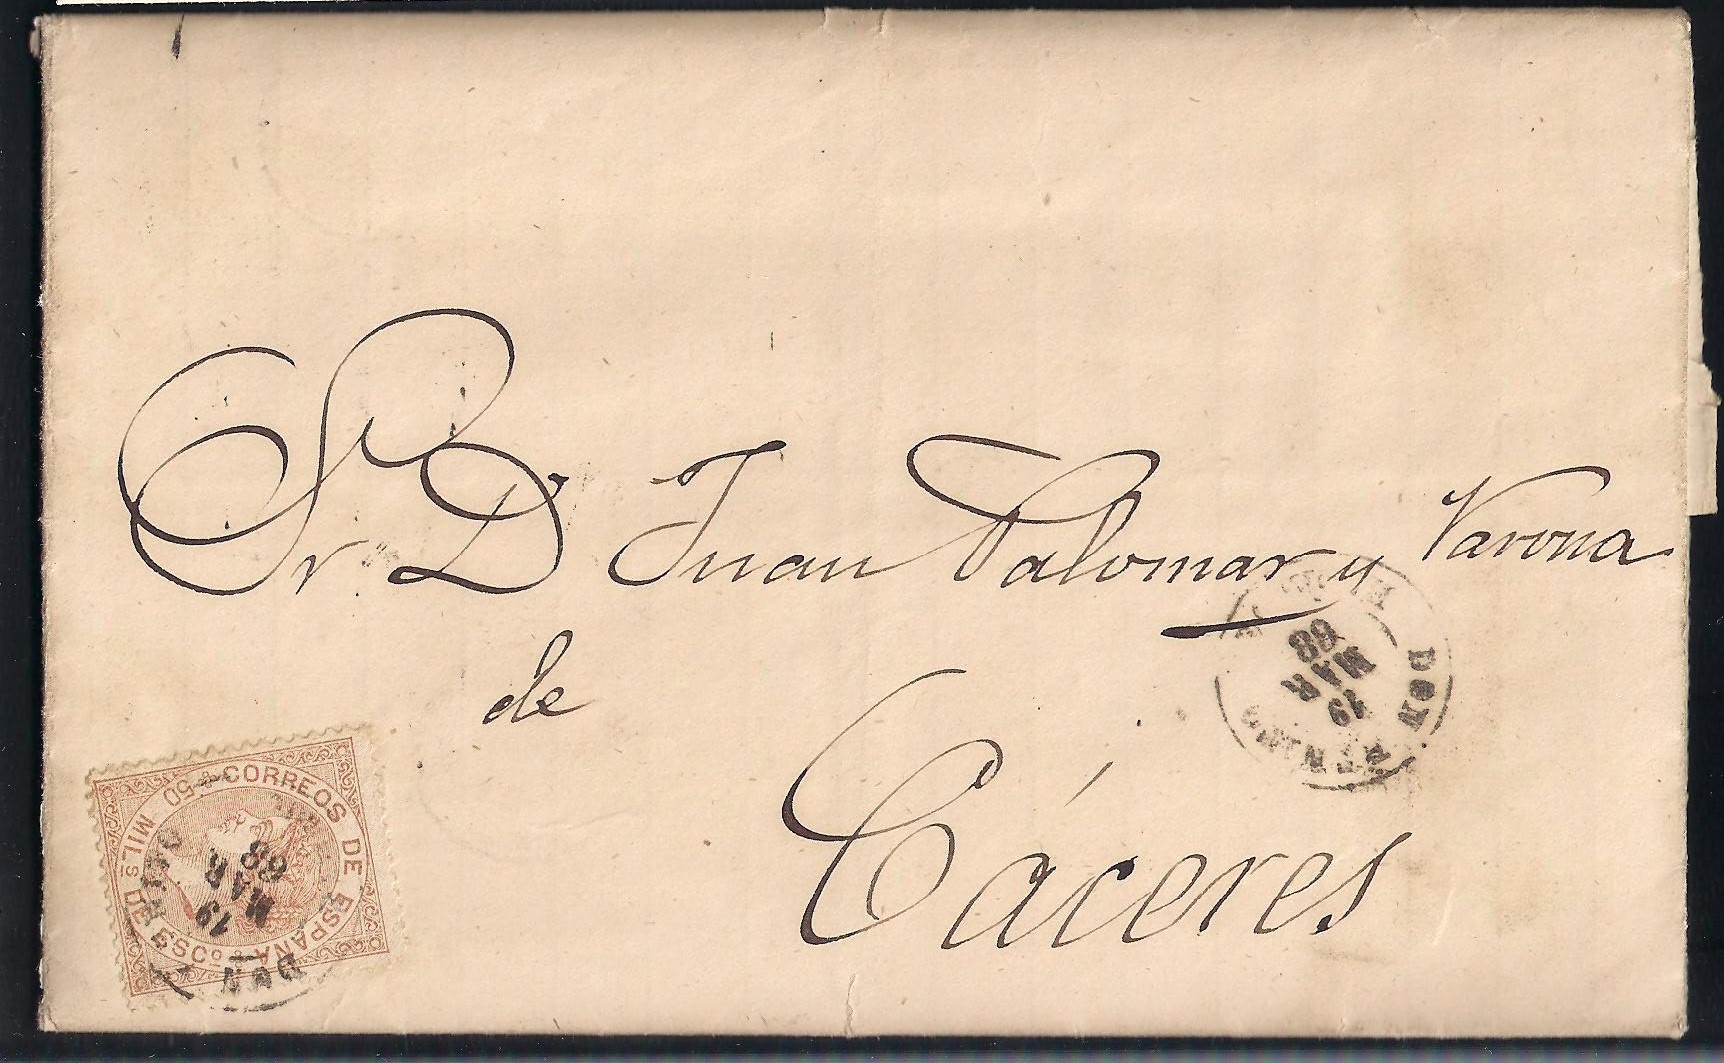 Sr Dn Juan Palomar y Varona
de
Cáceres
DON BENITO
19
MAR
68
CORREOS DE ESPAÑA
50 MILs DE ESCo
19
MAR
68
DON